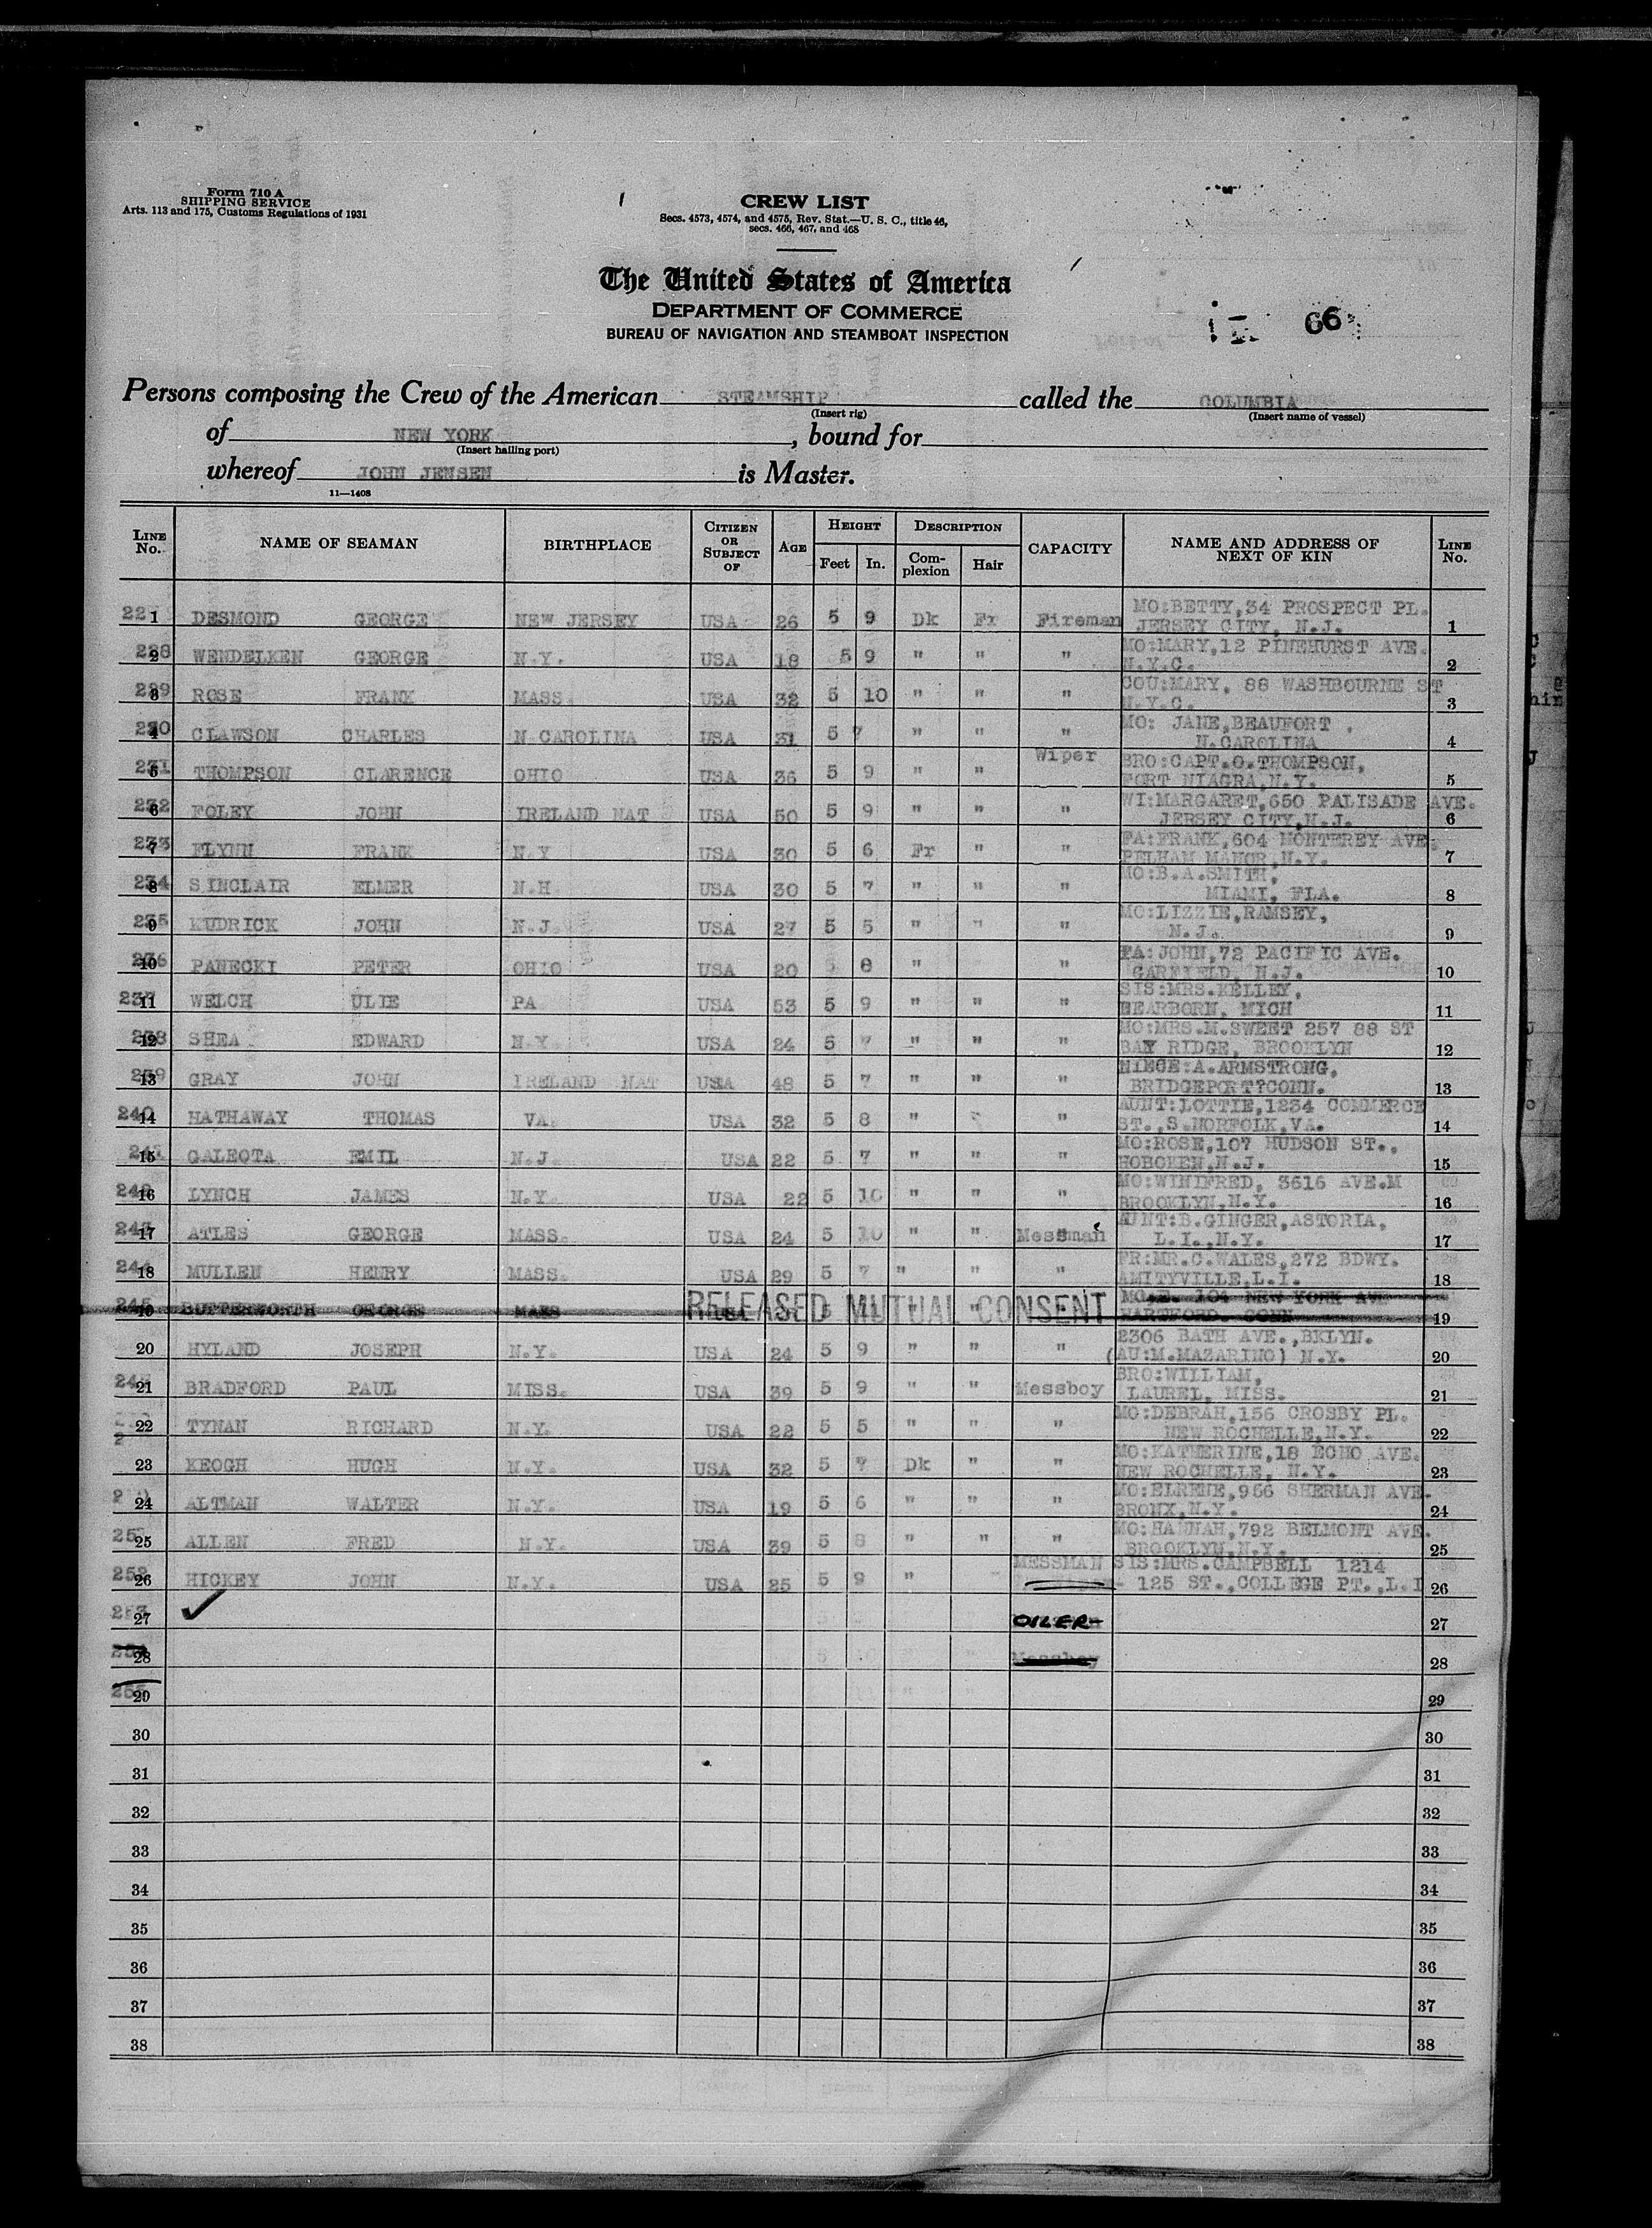 Form 710 A
SHIPPING SERVICE
Arts. 113 and 175, Customs Regulations of 1931
CREW LIST
Secs. 4573, 4574, and 4575, Rev. Stat.—U. S. C., title 46,
secs. 466, 467, and 468
The United States of America
DEPARTMENT OF COMMERCE
BUREAU OF NAVIGATION AND STEAMBOAT INSPECTION
66
Persons composing the Crew of the American STEAMSHIP called the COLUMBIA
(Insert rig) (Insert name of vessel)
of NEW YORK, bound for
(Insert hailing port)
whereof JOHN JENSEN is Master.
11—1408
LINE No. NAME OF SEAMAN BIRTHPLACE CITIZEN OR SUBJECT OF AGE HEIGHT Feet In. DESCRIPTION Complexion Hair CAPACITY NAME AND ADDRESS OF NEXT OF KIN LINE No.
1 DESMOND GEORGE NEW JERSEY USA 26 5 9 Dk Fr Fireman MO:BETTY,34 PROSPECT PL. JERSEY CITY, N.J. 1
228 2 WENDELKEN GEORGE N.Y. USA 18 5 9 " " " MO:MARY,12 PINEHURST AVE. N.Y.C. 2
229 3 ROSE FRANK MASS. USA 32 5 10 " " " COU:MARY, 88 WASHBOURNE ST N.Y.C. 3
230 4 CLAWSON CHARLES N CAROLINA USA 31 5 7 " " " MO: JANE,BEAUFORT , N.CAROLINA 4
231 5 THOMPSON CLARENCE OHIO USA 36 5 9 " " Wiper BRO:CAPT.O.THOMPSON, FORT NIAGRA,N.Y. 5
232 6 FOLEY JOHN IRELAND NAT USA 50 5 9 " " " WI:MARGARET,650 PALISADE AVE. JERSEY CITY,N.J. 6
233 7 FLYNN FRANK N.Y USA 30 5 6 Fr " " FA:FRANK,604 MONTEREY AVE. PELHAM MANOR,N.Y. 7
234 8 SINCLAIR ELMER N.H. USA 30 5 7 " " " MO:B.A.SMITH, MIAMI, FLA. 8
235 9 KUDRICK JOHN N.J. USA 27 5 5 " " " MO:LIZZIE,RAMSEY, N.J. 9
236 10 PANECKI PETER OHIO USA 20 5 8 " " FA:JOHN,72 PACIFIC AVE. GARFIELD, N.J. 10
237 11 WELCH ULIE PA USA 53 5 9 " " " SIS:MRS.KELLEY, DEARBORN, MICH 11
238 12 SHEA EDWARD N.Y. USA 24 5 7 " " " MO:MRS.M.SWEET 257 88 ST BAY RIDGE, BROOKLYN 12
239 13 GRAY JOHN IRELAND NAT USA 48 5 7 " " " NIECE:A.ARMSTRONG, BRIDGEPORT?CONN. 13
240 14 HATHAWAY THOMAS VA. USA 32 5 8 " " " AUNT:LOTTIE,1234 COMMERCE ST.,S.NORFOLK,VA. 14
241 15 GALEOTA EMIL N.J. USA 22 5 7 " " " MO:ROSE,107 HUDSON ST., HOBOKEN,N.J. 15
242 16 LYNCH JAMES N.Y. USA 22 5 10 " " " MO:WINIFRED, 3616 AVE.M BROOKLYN,N.Y. 16
243 17 ATLES GEORGE MASS. USA 24 5 10 " " Messman AUNT:B.GINGER,ASTORIA, L.I.,N.Y. 17
244 18 MULLEN HENRY MASS. USA 29 5 7 " " " FR:MR.C.WALES,272 BDWY. AMITYVILLE,L.I. 18
245 19 BUTTERWORTH GEORGE MASS RELEASED MUTUAL CONSENT 104 NEW YORK AVE HARTFORD. CONN 19
20 HYLAND JOSEPH N.Y. USA 24 5 9 " " " 2306 BATH AVE.,BKLYN. (AU:M.MAZARINO) N.Y. 20
21 BRADFORD PAUL MISS. USA 39 5 9 " " Messboy BRO:WILLIAM, LAUREL, MISS. 21
22 TYNAN RICHARD N.Y. USA 22 5 5 " " " MO:DEBRAH,156 CROSBY PL. NEW ROCHELLE,N.Y. 22
23 KEOGH HUGH N.Y. USA 32 5 7 Dk " " MO:KATHERINE,18 ECHO AVE. NEW ROCHELLE, N.Y. 23
24 ALTMAN WALTER N.Y. USA 19 5 6 " " " MO:ELRENE,966 SHERMAN AVE. BRONX,N.Y. 24
25 ALLEN FRED N.Y. USA 39 5 8 " " " MO:HANNAH,792 BELMONT AVE. BROOKLYN,N.Y. 25
252 26 HICKEY JOHN N.Y. USA 25 5 9 " MESSMAN SIS:MRS.CAMPBELL 1214 125 ST.,COLLEGE PT.,L.I 26
253 27 OILER 27
28 Messboy 28
29 29
30 30
31 31
32 32
33 33
34 34
35 35
36 36
37 37
38 38